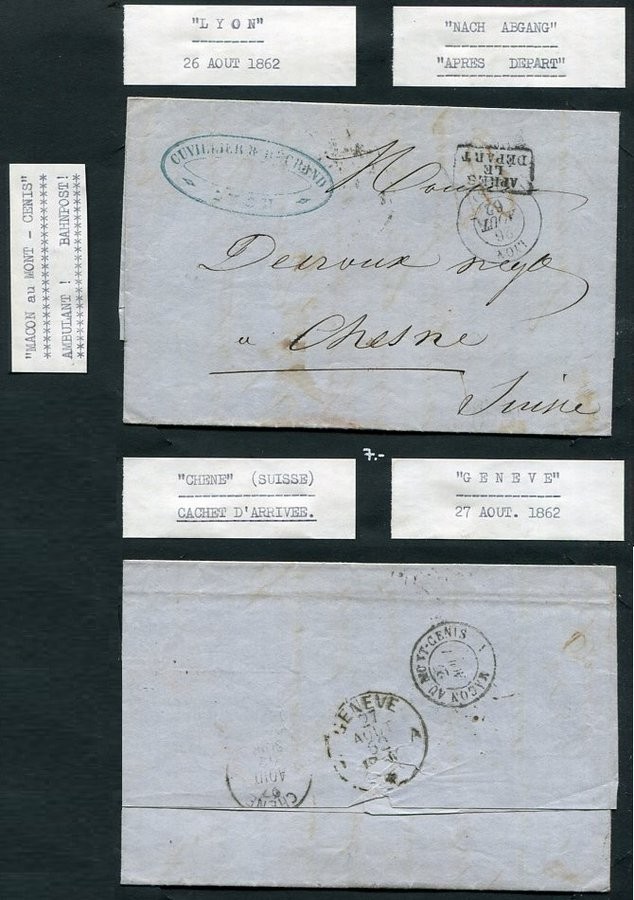 "LYON"
26 AOUT 1862
"NACH ABGANG"
"APRES DEPART"
"MACON au MONT - CENIS"
*********************
AMBULANT ! BAHNPOST!
*********************
CUVILLIER &
APRES
LE
DÉPART
LYON
26
AOUT
62
à Chesne
Suisse
7.-
"CHENE" (SUISSE)
CACHET D'ARRIVEE.
"GENEVE"
27 AOUT. 1862
MACON AU MONT-CENIS
GENEVE
27
AOUT
CHENE
AOUT